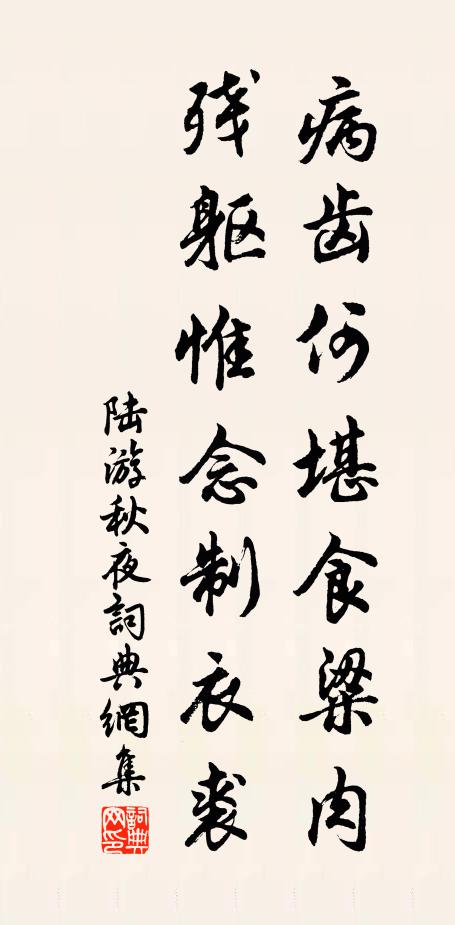 病齿何堪食粱肉
残躯惟念制衣裘
陆游秋夜詞典網集
詞典网印